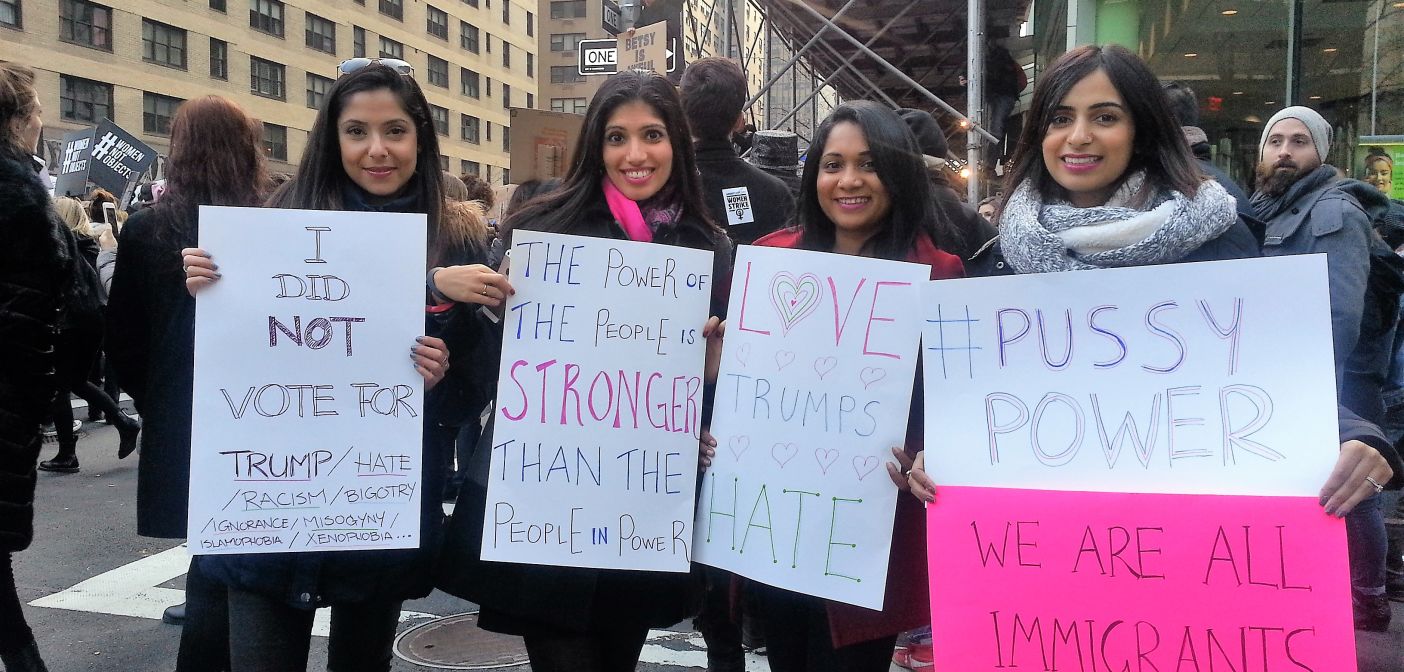 ONE
BETSY
IS
#WOMEN
NOT
#WOMEN
NOT
OBJECTS
WOMEN
STRIKE
I
DID
NOT
VOTE FOR
TRUMP/HATE
/RACISM/BIGOTRY
/IGNORANCE/MISOGYNY/
ISLAMOPHOBIA/XENOPHOBIA...
THE POWER OF
THE PEOPLE IS
STRONGER
THAN THE
PEOPLE IN POWER
LOVE
TRUMPS
HATE
#PUSSY
POWER
WE ARE ALL
IMMIGRANTS